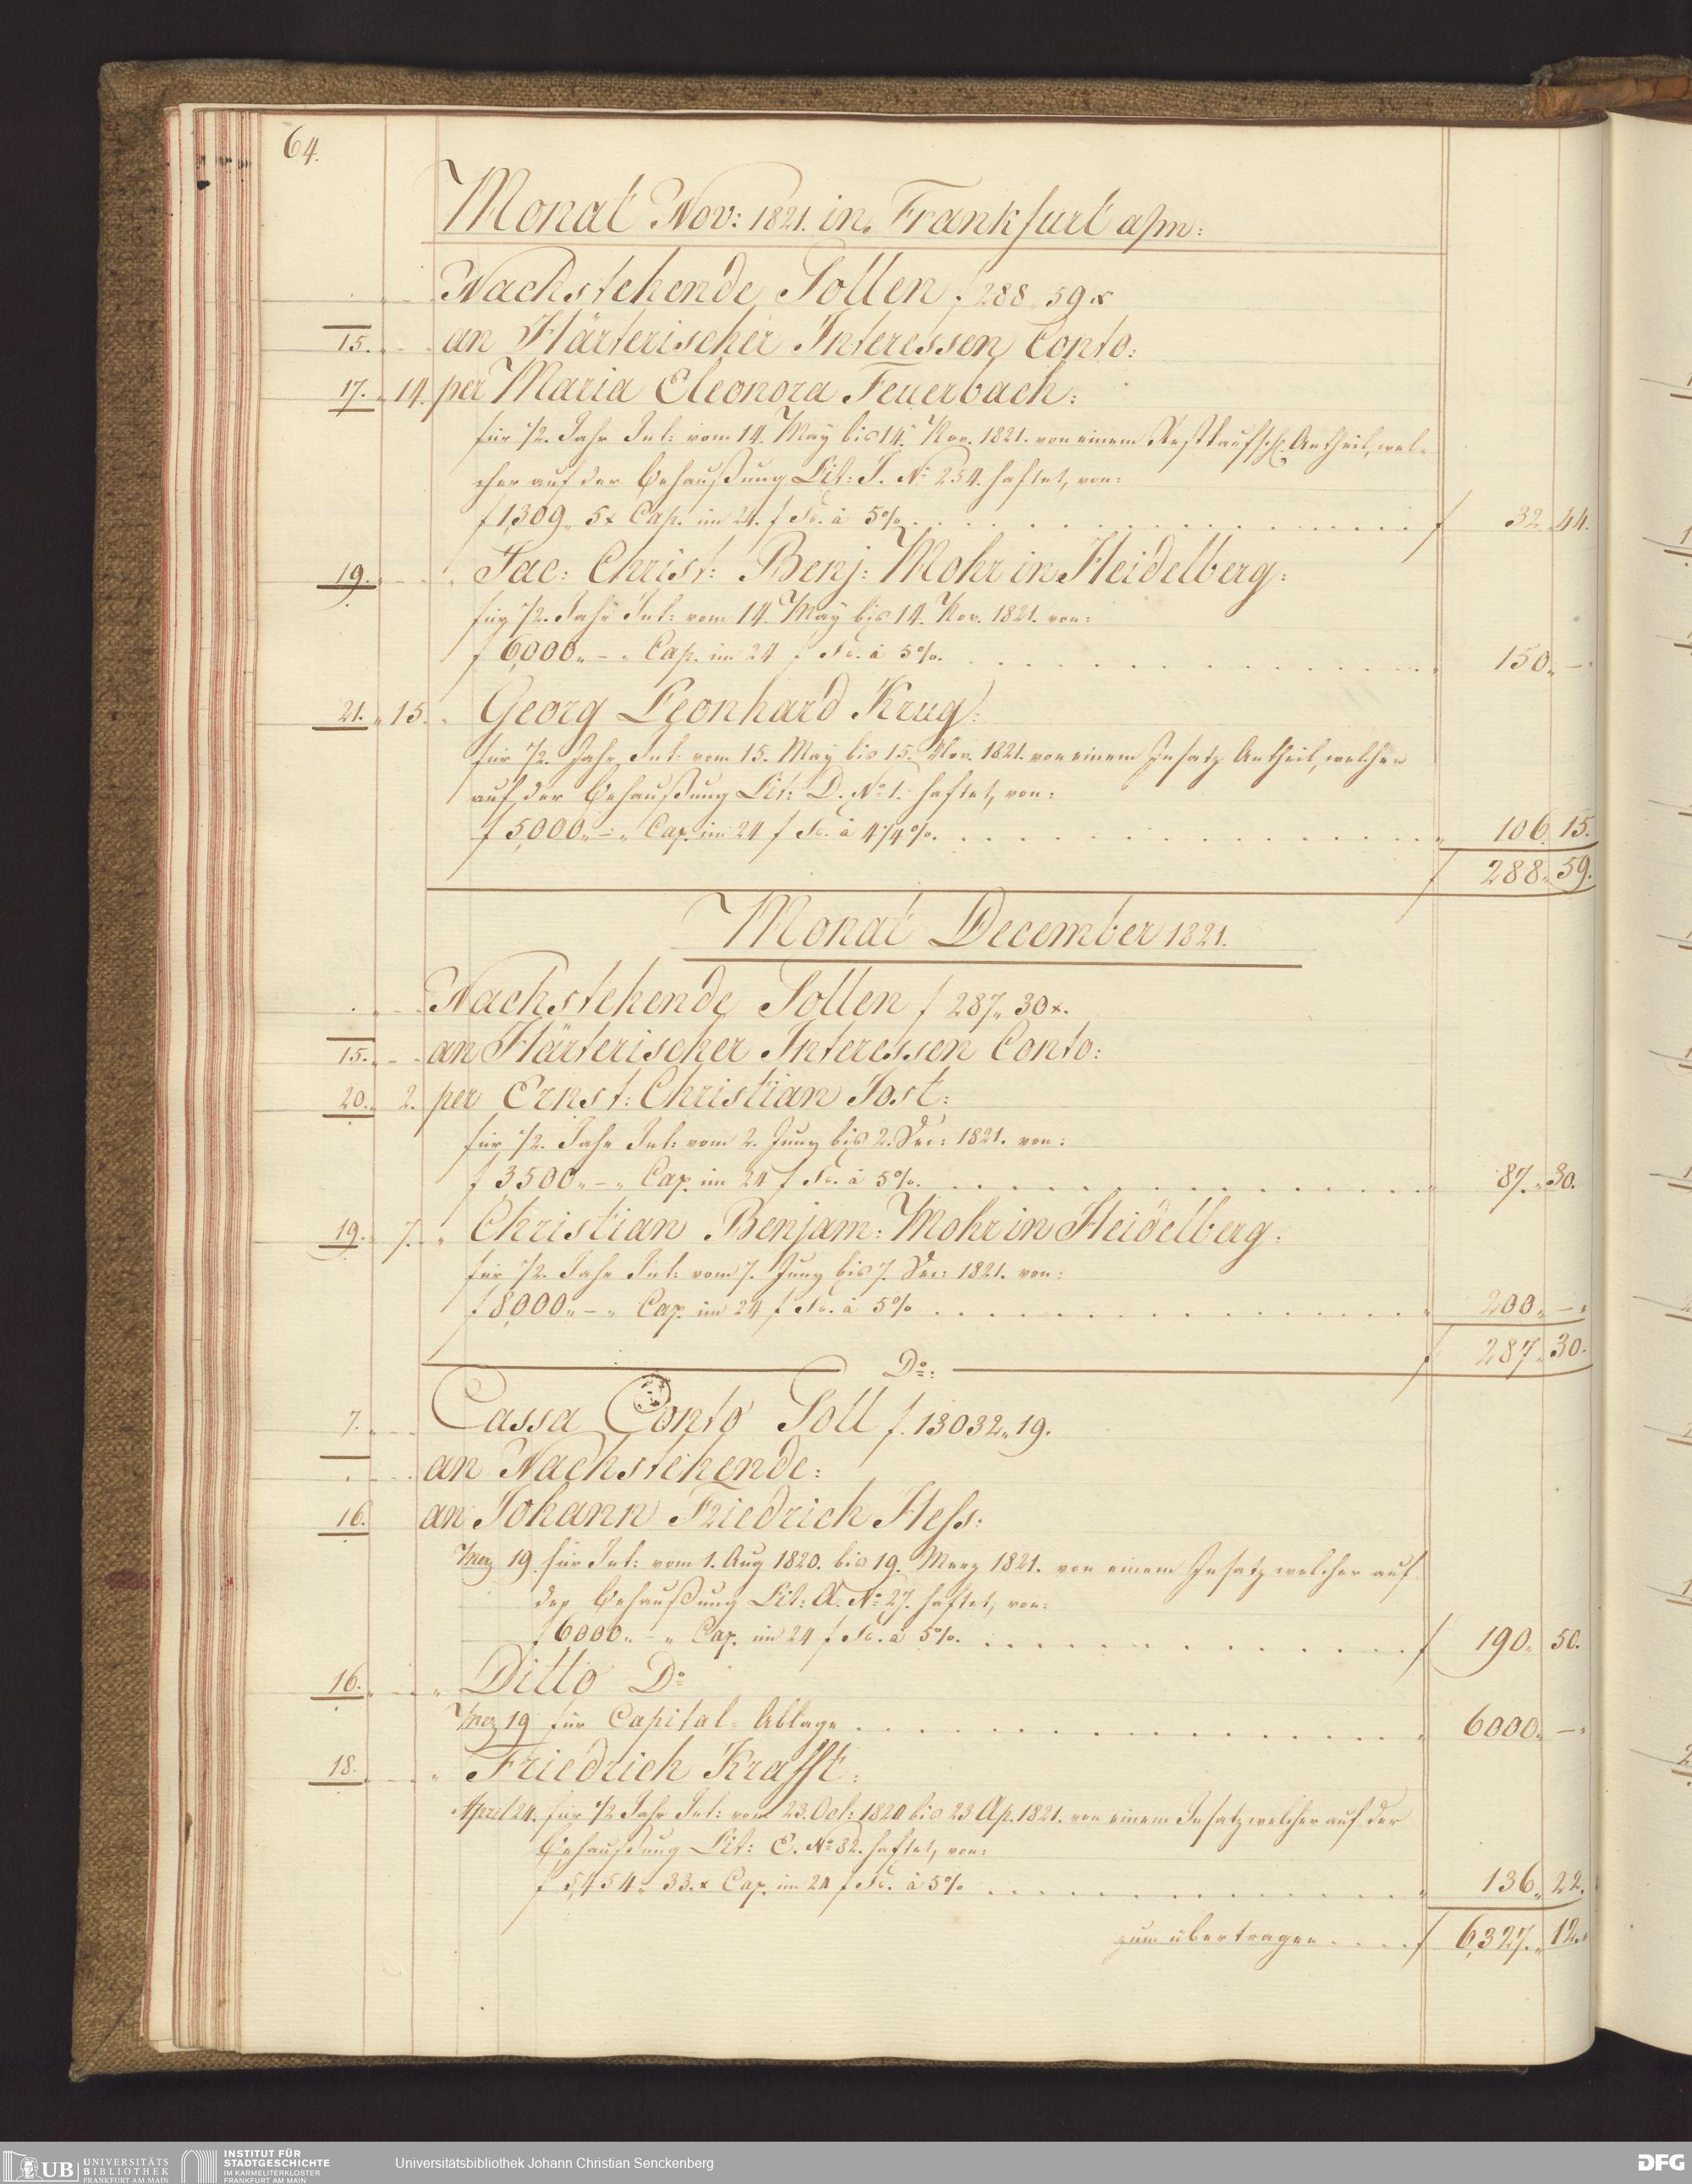 64.
Monat Nov: 1821. in Frankfurt a/m:
Nachstehende Sollen f 288 59 x
15. an Härterischer Interessen Conto:
17. 14. per Maria Eleonora Feuerbach:
für 1/2. Jahr Int: vom 14. May bis 14. Nov. 1821. von einem Restkaufsch. Antheil, wel-
cher auf der Behaußung Lit: J. No 254. haftet, von:
f 1,309 „ 5 x Cap. im 24. f Fs. à 5% . . . f 32 „ 44.
19. „ Jac: Christ: Benj: Mohr in Heidelberg:
für 1/2. Jahr Int: vom 14. May bis 14. Nov. 1821. von:
f 6,000 „ – „ Cap. im 24 f Fs. à 5% . . . „ 150 „ – „
21. „ 15. „ Georg Leonhard Krug:
für 1/2. Jahr Int: vom 15. May bis 15. Nov. 1821. von einem Insatz Antheil, welcher
auf der Behaußung Lit: D. No 1. haftet, von:
f 5,000 „ – „ Cap. im 24 f Fs. à 4 1/4 % . . . „ 106. 15.
f 288 „ 59.
Monat December 1821.
Nachstehende Sollen f 287 „ 30 x.
15. an Härterischer Interessen Conto:
20. 2. per Ernst: Christian Jost:
für 1/2. Jahr Int: vom 2. Juny bis 2. Dec: 1821. von:
f 3500 „ – „ Cap. im 24 f Fs. à 5% . . . „ 87 „ 30.
19. 7. „ Christian Benjam: Mohr in Heidelberg:
für 1/2. Jahr Int: vom 7. Juny bis 7. Dec: 1821. von:
f 8,000 „ – „ Cap. im 24 f Fs. à 5% . . . „ 200 „ – „
f 287 „ 30.
Do:
7. Cassa Conto Soll f. 13032 „ 19.
an Nachstehende:
16. an Johann Friedrich Hess:
Merz 19. für Int: vom 1. Aug 1820. bis 19. Merz 1821. von einem Insatz welcher auf
der Behaußung Lit: A. No 27. haftet, von:
f 6000 „ – „ Cap. im 24 f Fs. à 5% . . . f 190 „ 50.
16. „ Ditto Do
Merz 19 für Capital Ablage . . . „ 6000 „ – „
18. „ Friedrich Krafft:
April 24. für 1/2 Jahr Int: vom 23. Oct: 1820 bis 23 Ap. 1821. von einem Insatz welcher auf der
Behaußung Lit: E. No 82. haftet, von:
f 5,454 „ 33. x Cap. im 24 f Fs. à 5% . . . „ 136 „ 22.
zum übertragen . . . . f 6,327 „ 12 „
UB UNIVERSITÄTS
BIBLIOTHEK
FRANKFURT AM MAIN
INSTITUT FÜR
STADTGESCHICHTE
IM KARMELITERKLOSTER
FRANKFURT AM MAIN
Universitätsbibliothek Johann Christian Senckenberg
DFG